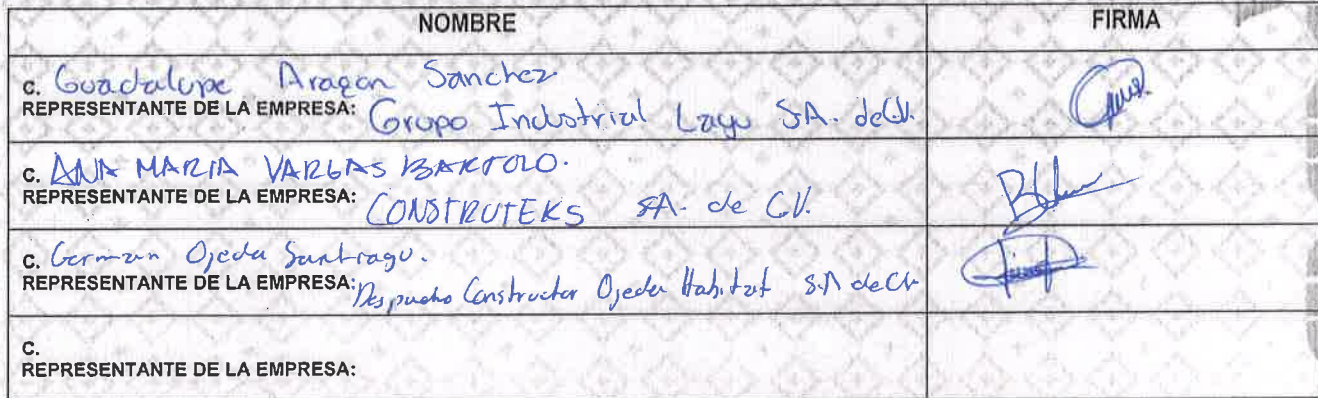 NOMBRE FIRMA
C. Guadalupe Aragon Sanchez
REPRESENTANTE DE LA EMPRESA: Grupo Industrial Layu S.A. de C.V.
C. ANA MARIA VARGAS BARTOLO.
REPRESENTANTE DE LA EMPRESA: CONSTRUTEKS S.A. de C.V.
C. German Ojeda Santiago.
REPRESENTANTE DE LA EMPRESA: Despacho Constructor Ojeda Habitat S.A de CV
C.
REPRESENTANTE DE LA EMPRESA: